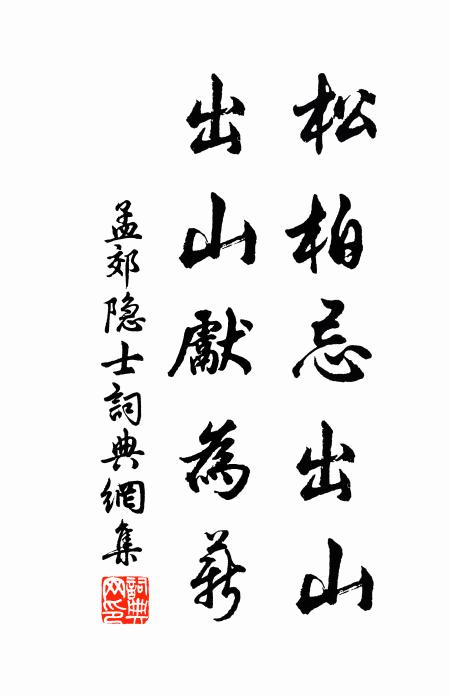 松柏忌出山
出山獻為薪
孟郊隐士詞典網集
詞典
网印